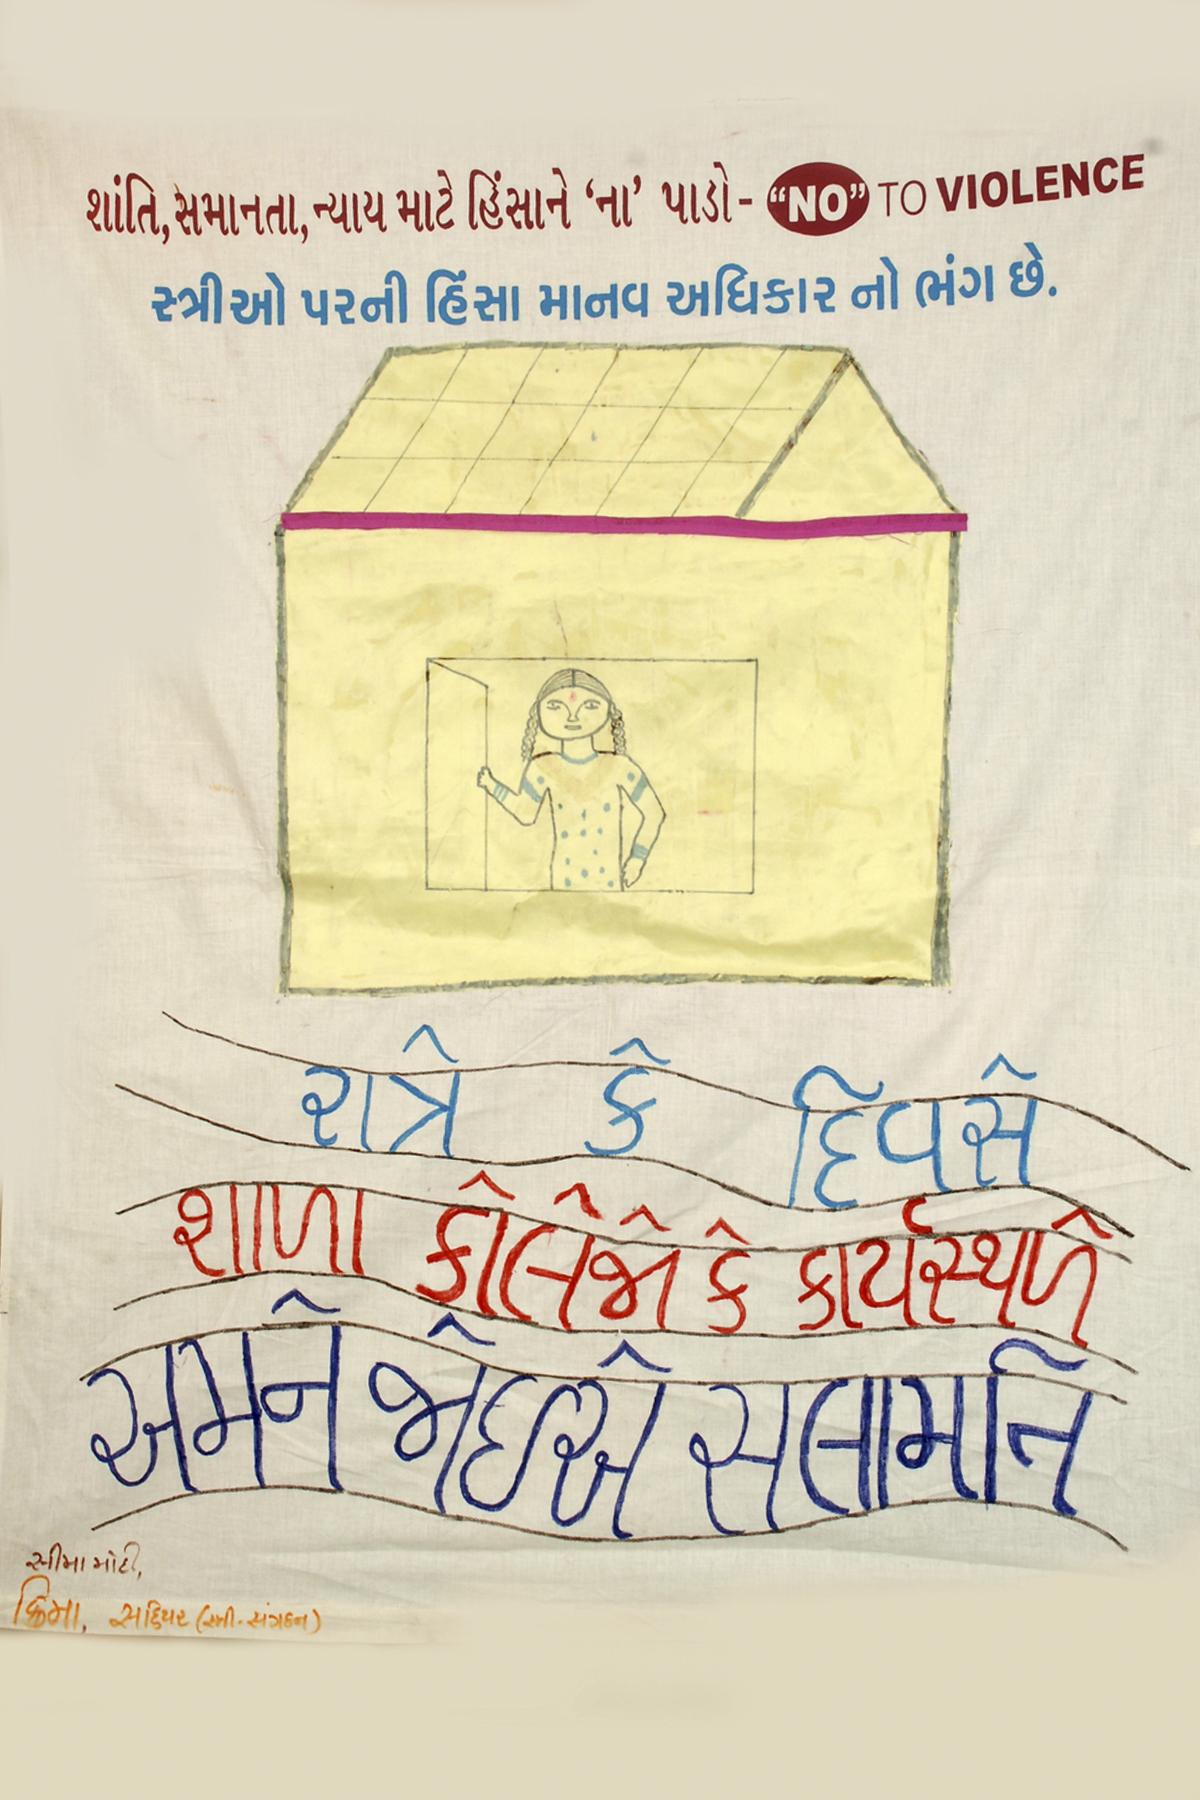 શાંતિ, સમાનતા, ન્યાય માટે હિંસાને ‘ના’ પાડો- “NO” TO VIOLENCE
સ્ત્રીઓ પરની હિંસા માનવ અધિકાર નો ભંગ છે.
રાત્રે કે દિવસે
શાળા કોલેજો કે કાર્યસ્થળે
અમને જોઇએ સલામતિ
સીમા મોટી,
સહિયર (સ્ત્રી-સંગઠન)